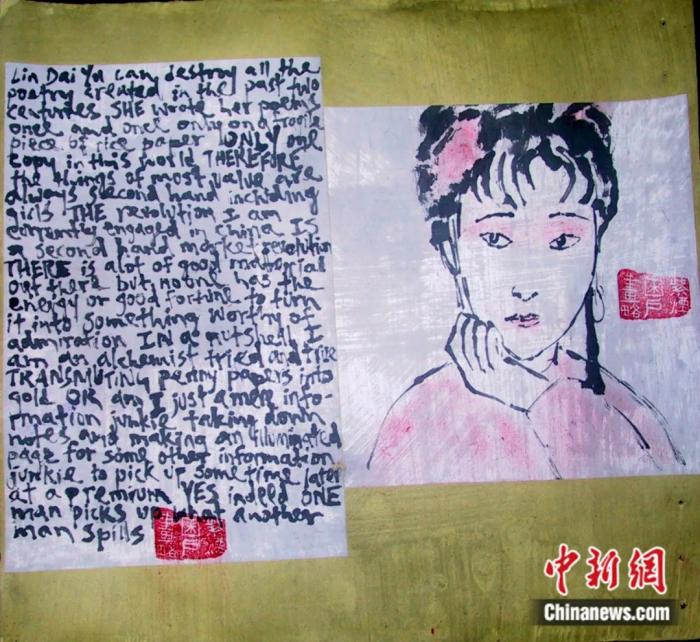 Lin Dai Yu can destroy all the
poetry created in the past two
centuries SHE wrote her poems
once and once only on a
piece of rice paper ONLY one
copy in this world THEREFORE
the things of most value are
always second hand including
girls THE revolution I am
currently engaged in china IS
a second hand market revolution
THERE is alot of good material
out there but no one has the
energy or good fortune to turn
it into something worthy of
admiration IN a nutshell I
am an alchemist tried and true
TRANSMUTING penny papers into
gold OR am I just a mere info-
rmation junkie taking down
notes and making an illuminated
page for some other information
junkie to pick up sometime later
at a premium YES indeed ONE
man picks up what another
man spills
中新网
Chinanews.com